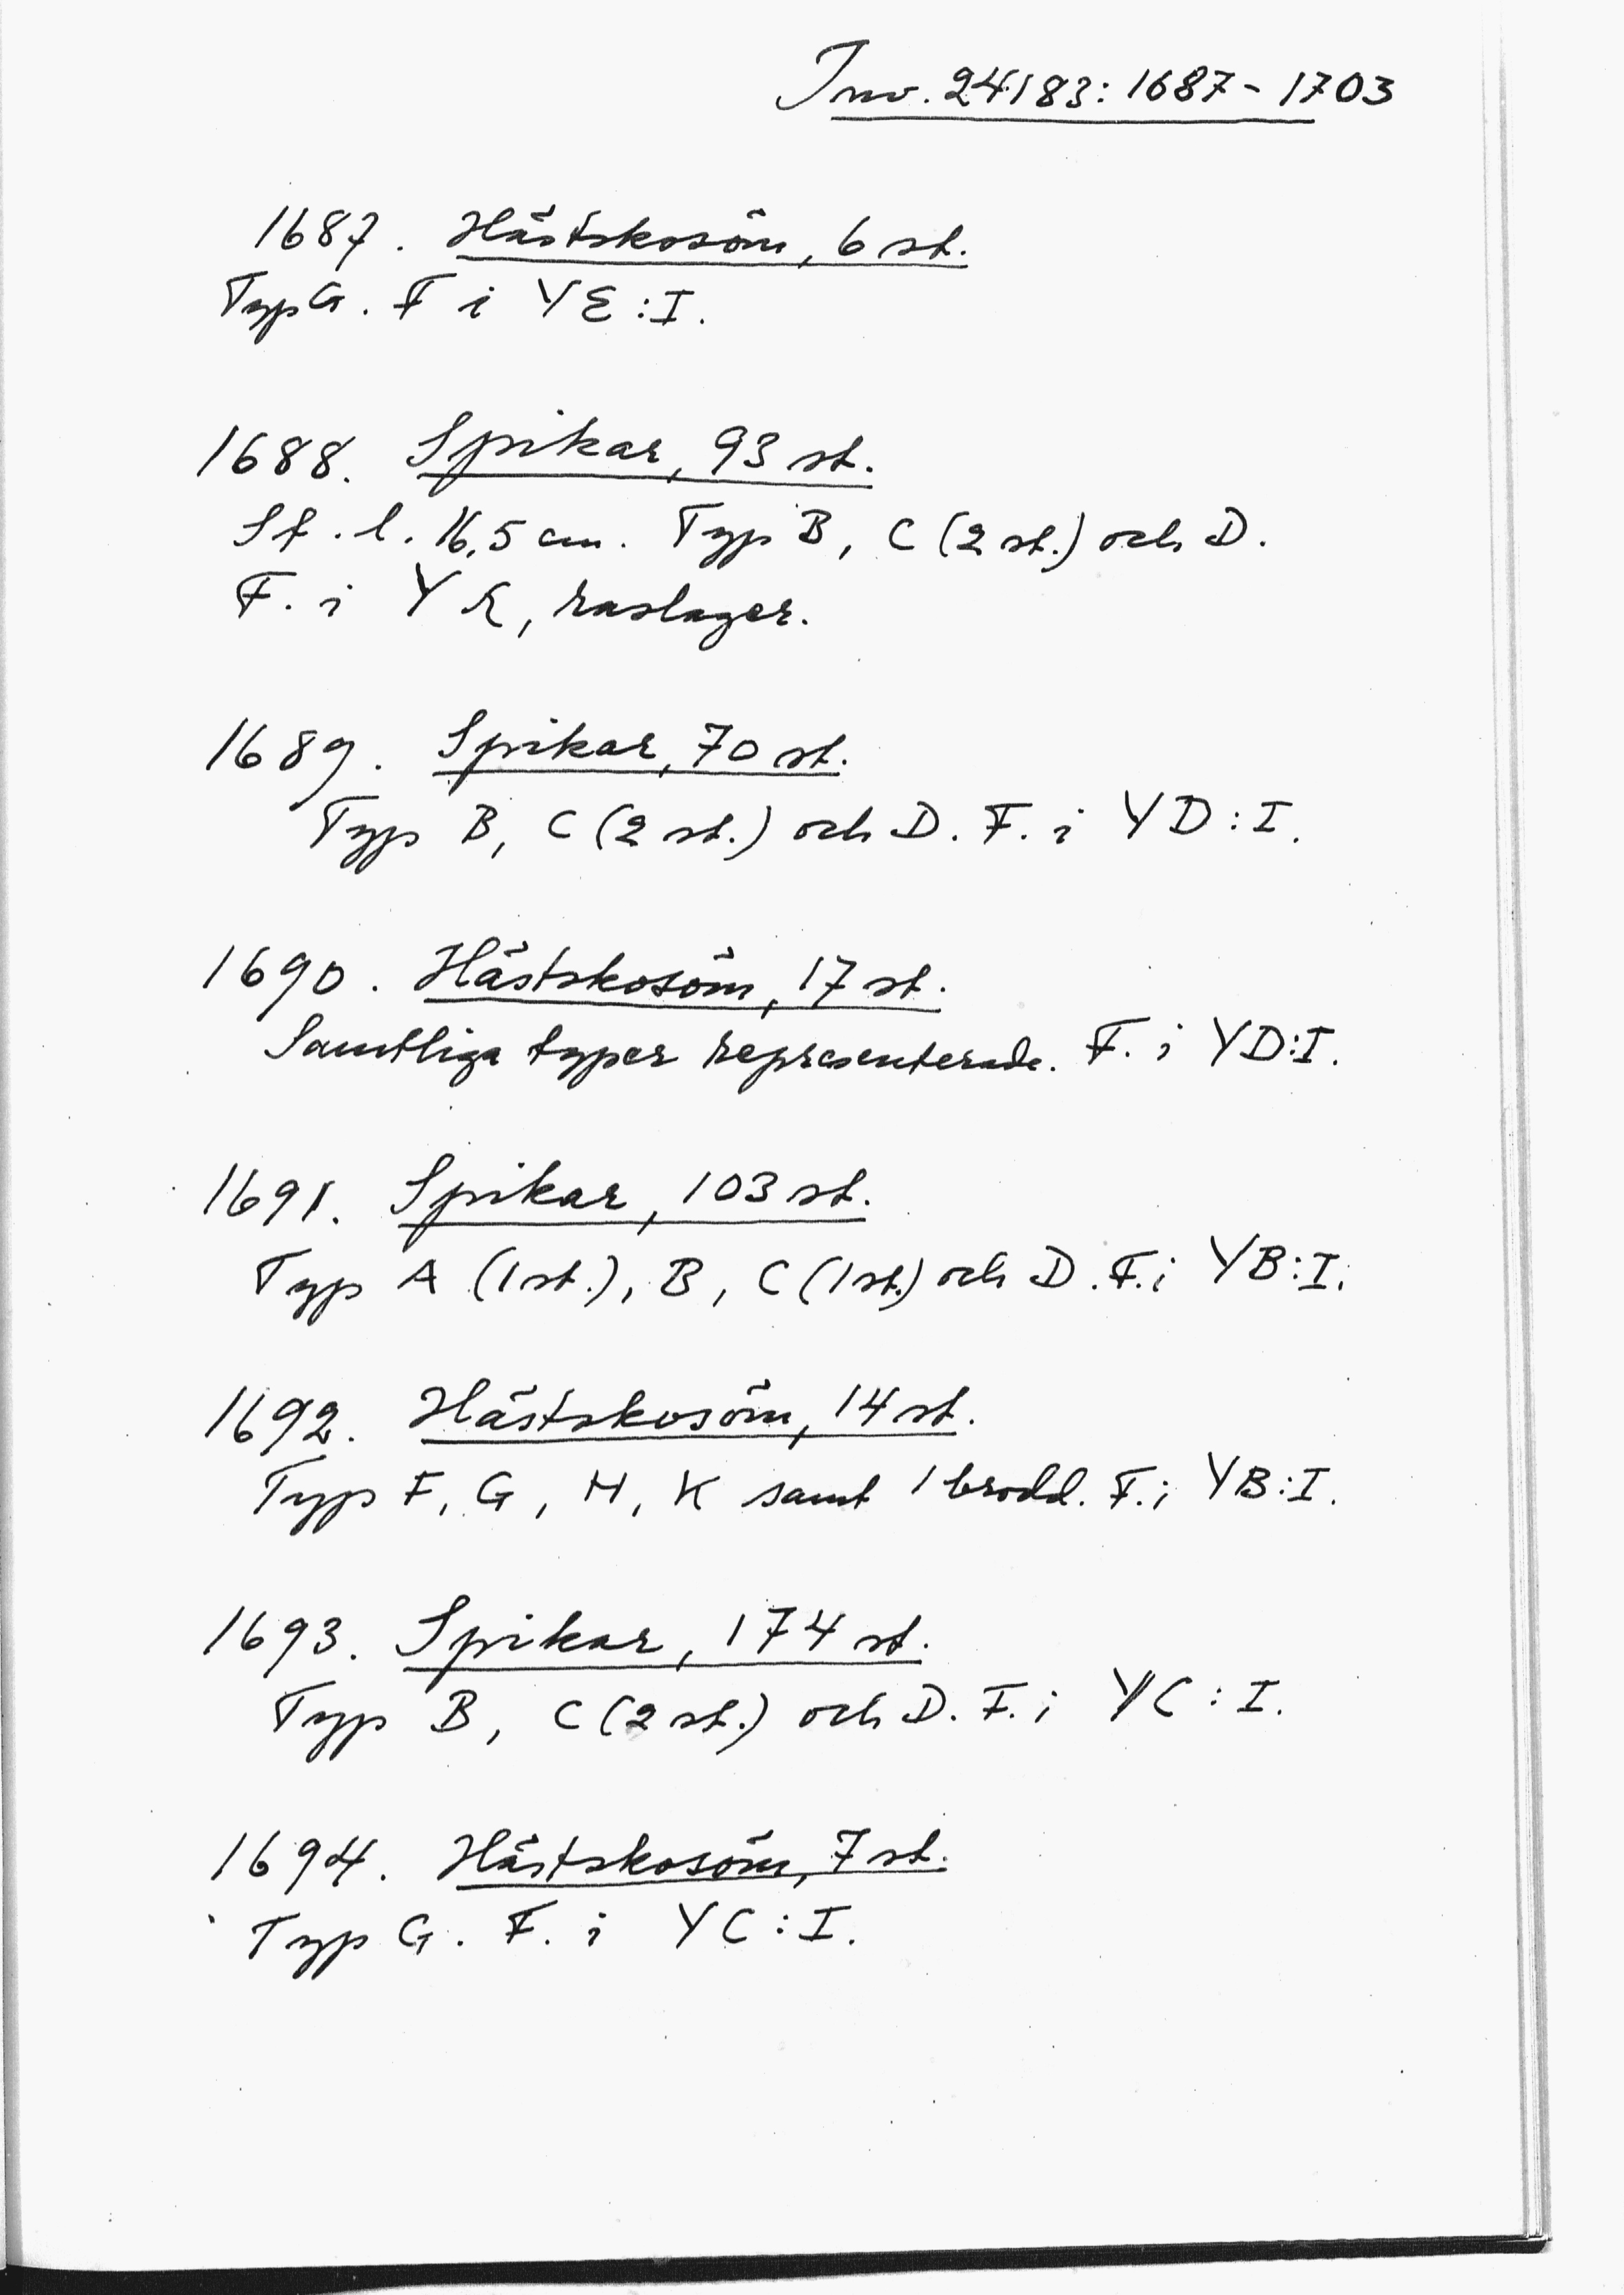 Inv. 24183: 1687-1703
1687. Hästskosöm, 6 st.
Typ G. F i YE:I.
1688. Spikar, 93 st.
St. l. 16,5 cm. Typ B, C (2 st.) och D.
F. i YE, raslager.
1689. Spikar, 70 st.
Typ B, C (2 st.) och D. F. i YD:I.
1690. Hästskosöm, 17 st.
Samtliga typer representerade. F. i YD:I.
1691. Spikar, 103 st.
Typ A (1 st.), B, C (1 st.) och D. F. i YB:I.
1692. Hästskosöm, 14 st.
Typ F, G, H, K samt 1 brodd. F. i YB:I.
1693. Spikar, 174 st.
Typ B, C (2 st.) och D. F. i YC:I.
1694. Hästskosöm, 7 st.
Typ G. F. i YC:I.